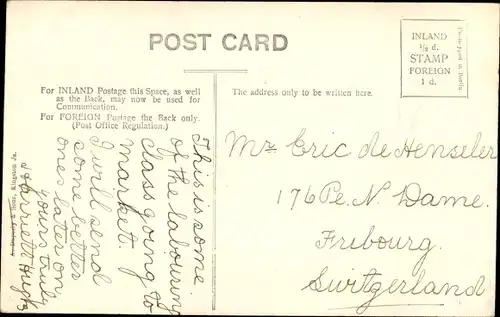 POST CARD
INLAND
½ d.
STAMP
FOREIGN
1 d.
For INLAND Postage this Space, as well
as the Back, may now be used for
Communication.
For FOREIGN Postage the Back only.
(Post Office Regulation.)
The address only to be written here.
This is some
of the labouring
class going to
market.
I will send
some better
ones later on,
yours truly
Harriett
Kingston Ja.
Mr Eric de Henseler
176 Pe. N. Dame.
Fribourg.
Switzerland